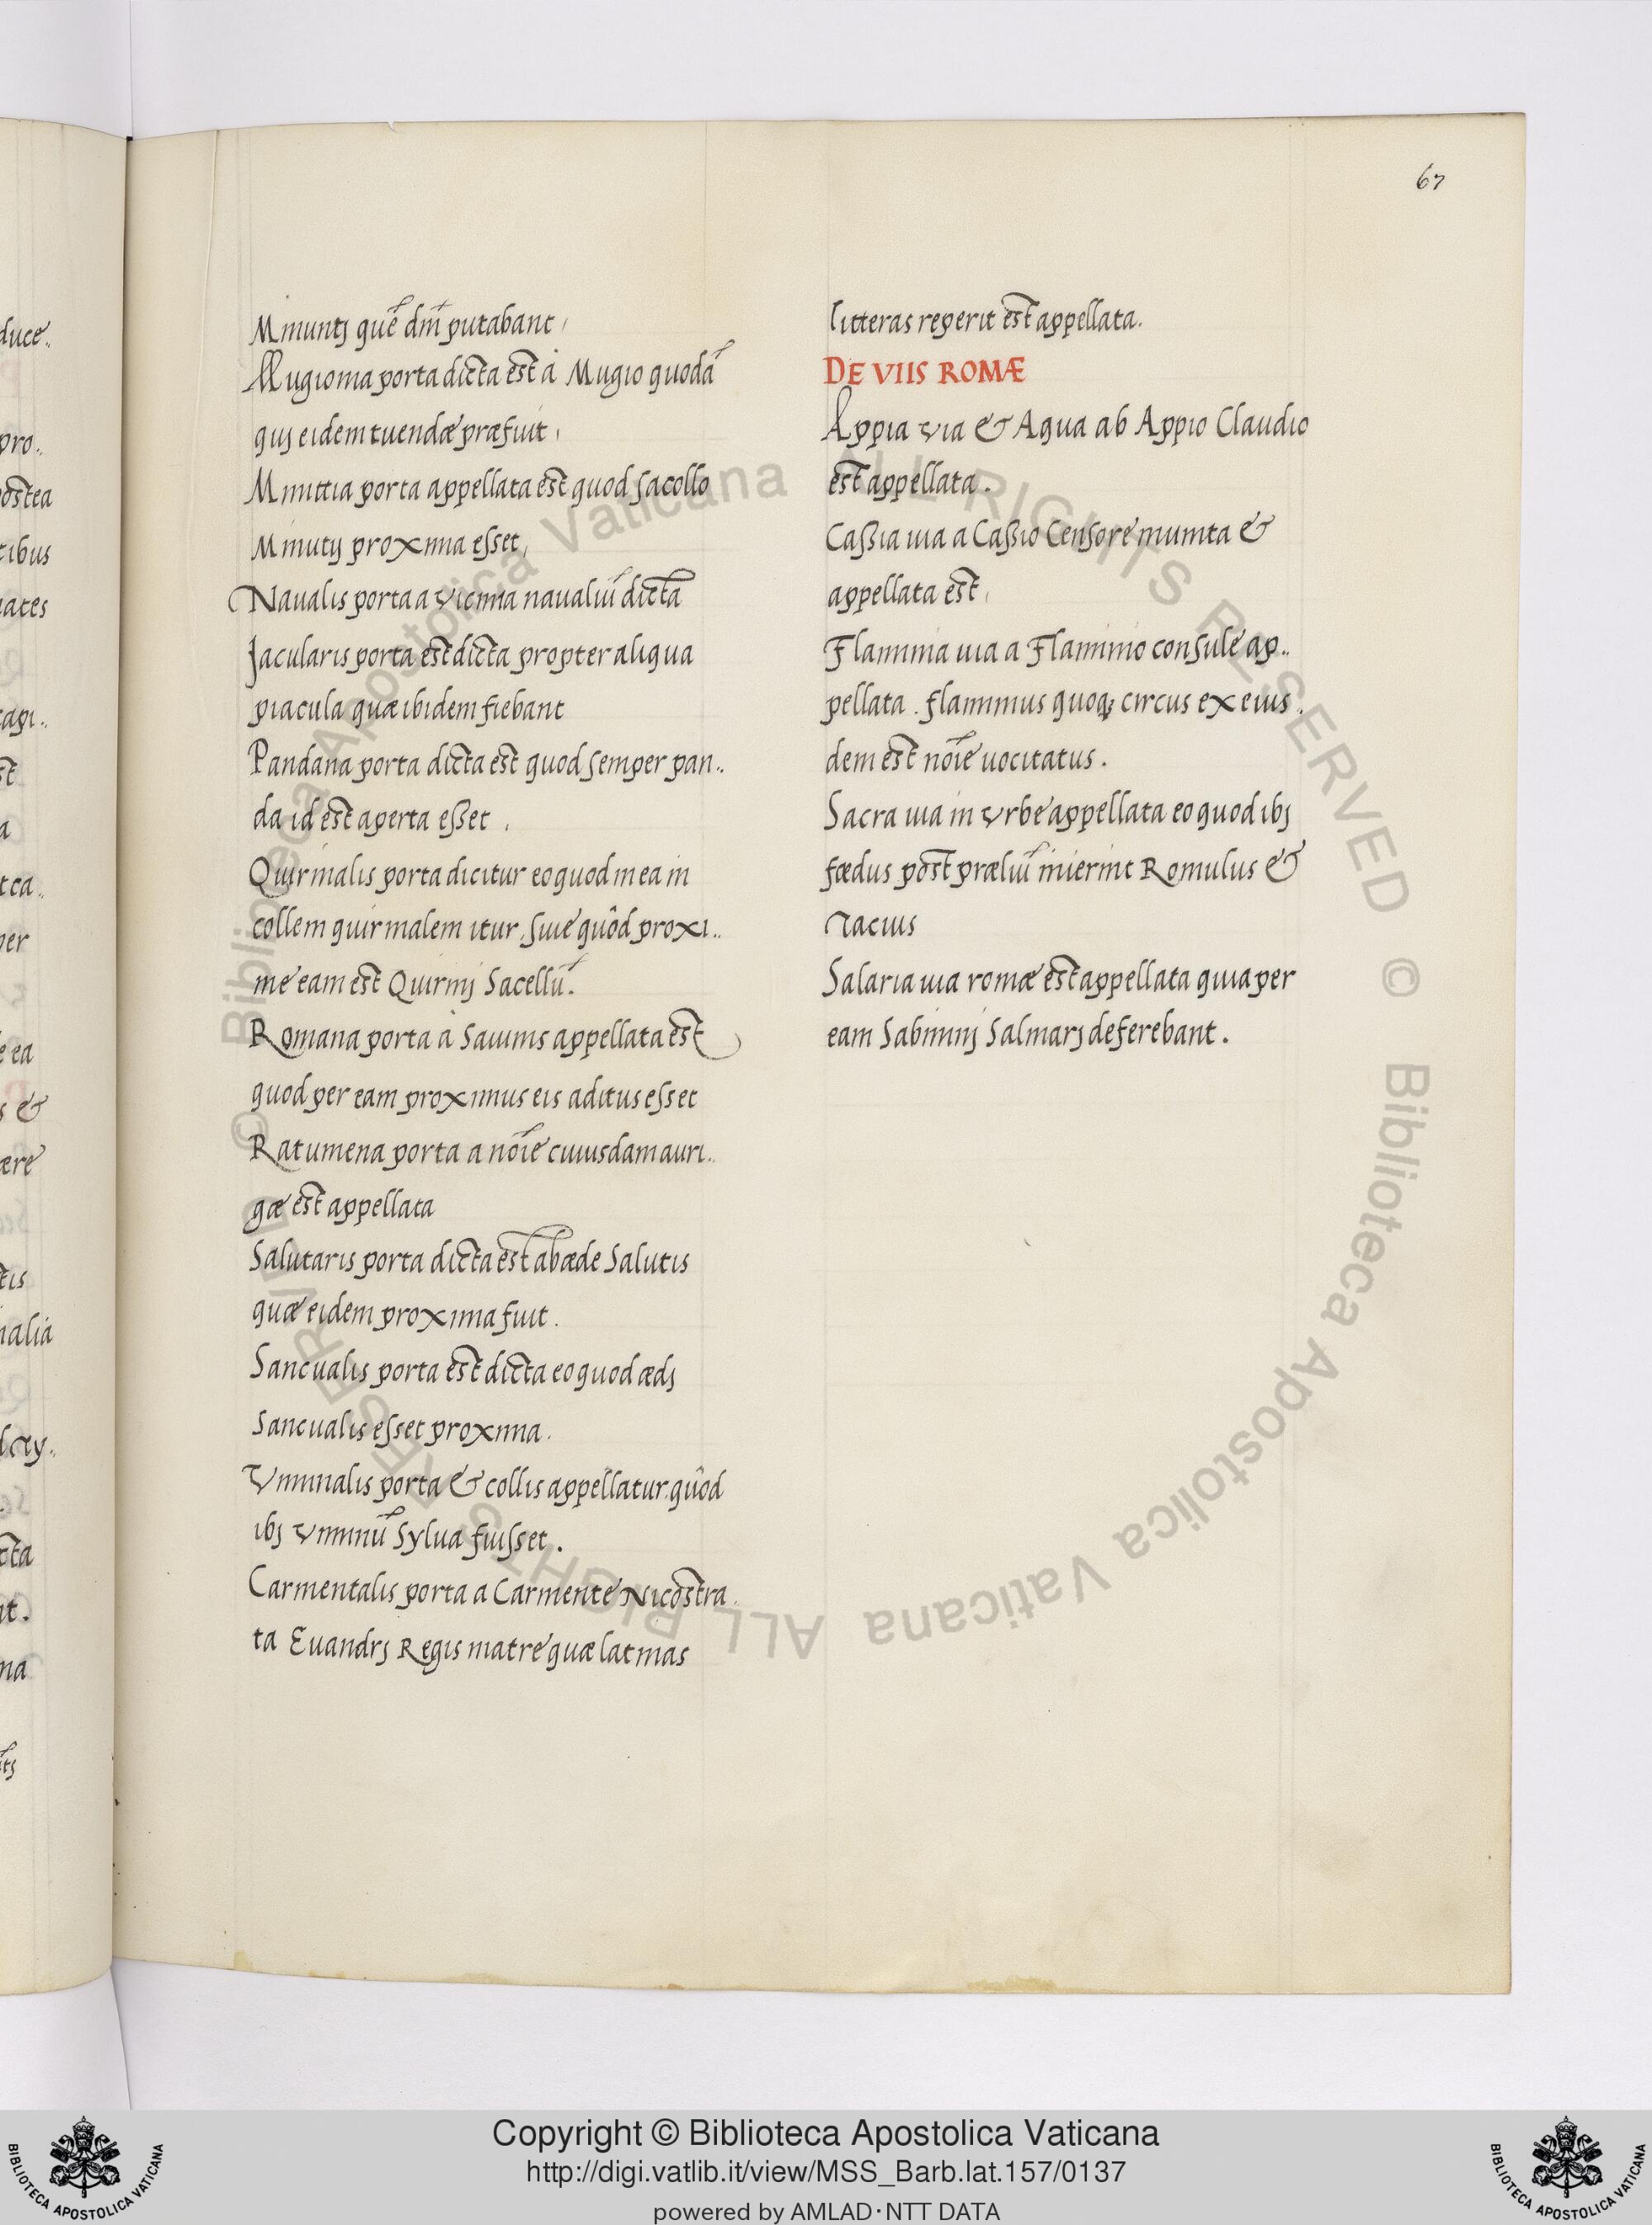 67
Minuntj quē dm̄ putabant
Mugionia porta dicta est à Mugio quodā
quj eidem tuendæ præfuit
Minuttia porta appellata est quod sacollo
Minutij proxima esset
Naualis porta a vicinia naualiū dicta
Jacularis porta est dicta propter aliqua
piacula quæ ibidem fiebant
Pandana porta dicta est quod semper pan..
da id est aperta esset .
Quirinalis porta dicitur eo quod in ea in
collem quirinalem itur, siue quôd proxi..
me eam est Quirinj Sacellū.
Romana porta à Sauinis appellata est
quod per eam proximus eis aditus esset
Ratumena porta a nōie cuiusdam auri..
gæ est appellata
Salutaris porta dicta est ab æde Salutis
quæ eidem proxima fuit .
Sancualis porta est dicta eo quod ædj
Sancualis esset proxima .
Viminalis porta & collis appellatur quôd
ibj viminū Sylua fuisset .
Carmentalis porta a Carmente Nicostra.
ta Euandrj Regis matre quæ latinas
litteras reperit est appellata.
DE VIIS ROMÆ
Appia via & Aqua ab Appio Claudio
est appellata .
Cassia uia a Cassio Censore munita &
appellata est
Flaminia uia a Flaminio consule ap..
pellata . flaminius quoq; circus ex eius.
dem est nōie uocitatus .
Sacra uia in vrbe appellata eo quod ibj
fœdus post præliū inierint Romulus &
Tacius
Salaria uia romæ est appellata quia per
eam Sabininj Salinarj deferebant .
duce..
pro..
ostea
tibus
capi..
tca..
per
e ea
s &
ære
tis
nalia
cta
nt.
na
© Biblioteca Apostolica Vaticana ALL RIGHTS RESERVED © Biblioteca Apostolica Vaticana ALL RIGHTS RESERVED
Copyright © Biblioteca Apostolica Vaticana
http://digi.vatlib.it/view/MSS_Barb.lat.157/0137
powered by AMLAD·NTT DATA
BIBLIOTECA APOSTOLICA VATICANA
BIBLIOTECA APOSTOLICA VATICANA